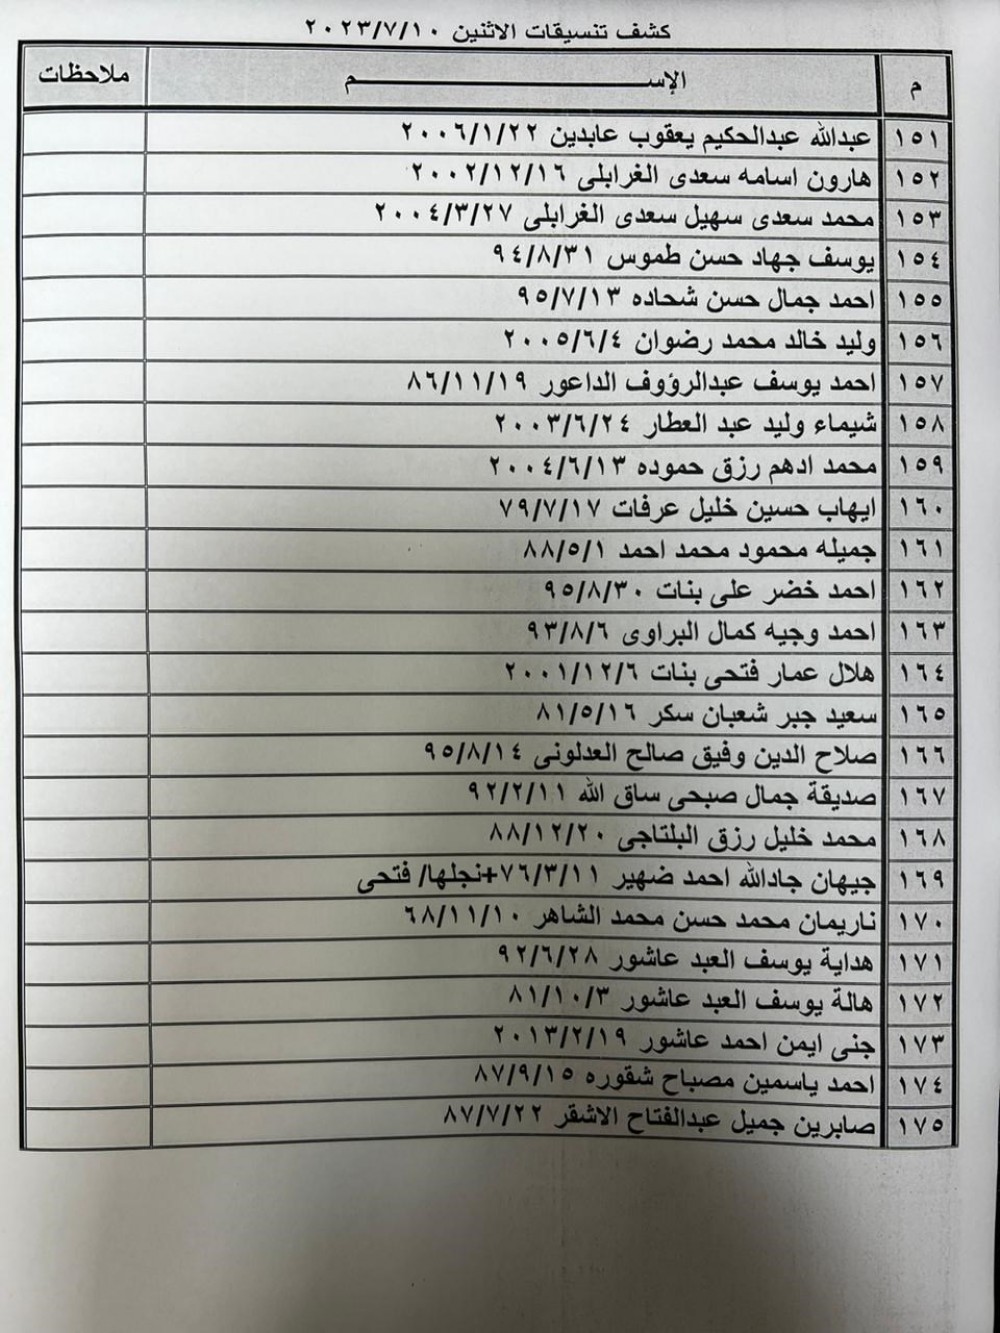 كشف تنسيقات الاثنين ٢٠٢٣/٧/١٠
م الإســـــــــم ملاحظات
١٥١ عبدالله عبدالحكيم يعقوب عابدين ٢٠٠٦/١/٢٢
١٥٢ هارون اسامه سعدى الغرابلى ٢٠٠٢/١٢/١٦
١٥٣ محمد سعدى سهيل سعدى الغرابلى ٢٠٠٤/٣/٢٧
١٥٤ يوسف جهاد حسن طموس ٩٤/٨/٣١
١٥٥ احمد جمال حسن شحاده ٩٥/٧/١٣
١٥٦ وليد خالد محمد رضوان ٢٠٠٥/٦/٤
١٥٧ احمد يوسف عبدالرؤوف الداعور ٨٦/١١/١٩
١٥٨ شيماء وليد عبد العطار ٢٠٠٣/٦/٢٤
١٥٩ محمد ادهم رزق حموده ٢٠٠٤/٦/١٣
١٦٠ ايهاب حسين خليل عرفات ٧٩/٧/١٧
١٦١ جميله محمود محمد احمد ٨٨/٥/١
١٦٢ احمد خضر على بنات ٩٥/٨/٣٠
١٦٣ احمد وجيه كمال البراوى ٩٣/٨/٦
١٦٤ هلال عمار فتحى بنات ٢٠٠١/١٢/٦
١٦٥ سعيد جبر شعبان سكر ٨١/٥/١٦
١٦٦ صلاح الدين وفيق صالح العدلونى ٩٥/٨/١٤
١٦٧ صديقة جمال صبحى ساق الله ٩٢/٢/١١
١٦٨ محمد خليل رزق البلتاجى ٨٨/١٢/٢٠
١٦٩ جيهان جادالله احمد ضهير ٧٦/٣/١١+نجلها/ فتحى
١٧٠ ناريمان محمد حسن محمد الشاهر ٦٨/١١/١٠
١٧١ هداية يوسف العبد عاشور ٩٢/٦/٢٨
١٧٢ هالة يوسف العبد عاشور ٨١/١٠/٣
١٧٣ جنى ايمن احمد عاشور ٢٠١٣/٢/١٩
١٧٤ احمد ياسمين مصباح شقوره ٨٧/٩/١٥
١٧٥ صابرين جميل عبدالفتاح الاشقر ٨٧/٧/٢٢